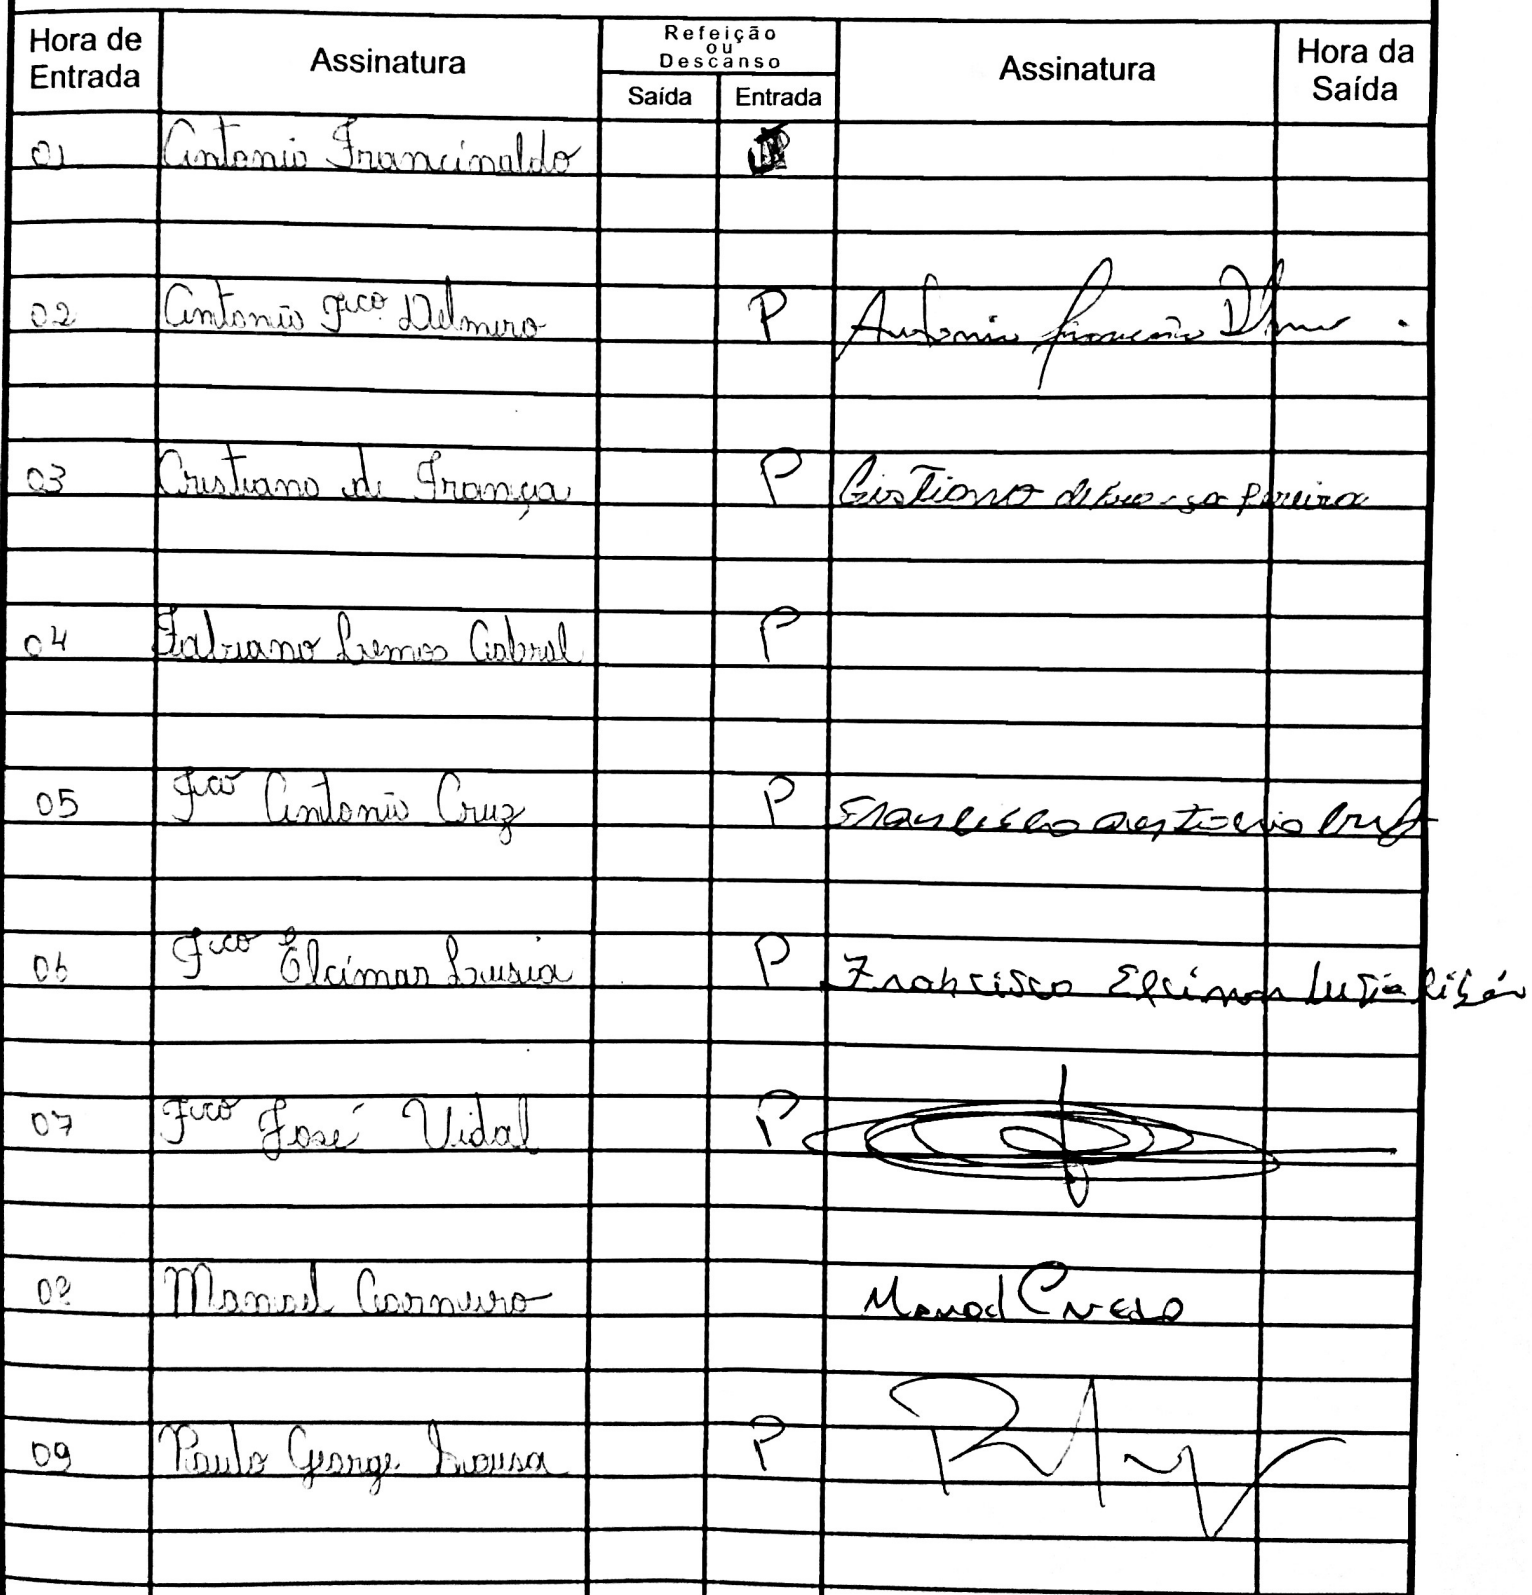 Hora de Entrada Assinatura Refeição ou Descanso Assinatura Hora da Saída
Saída Entrada
01 Antonio Francinaldo
02 Antonio Fco Delmiro P Antonio Francisco
03 Cristiano de França P Cristiano de França Pereira
04 Fabiano Lemos Cabral P
05 Fco Antonio Cruz P Francisco Antonio Cruz
06 Fco Elcimar Lusia P Francisco Elcimar Lusia
07 Fco José Vidal P
08 Manoel Carneiro Manoel
09 Paulo George Sousa P